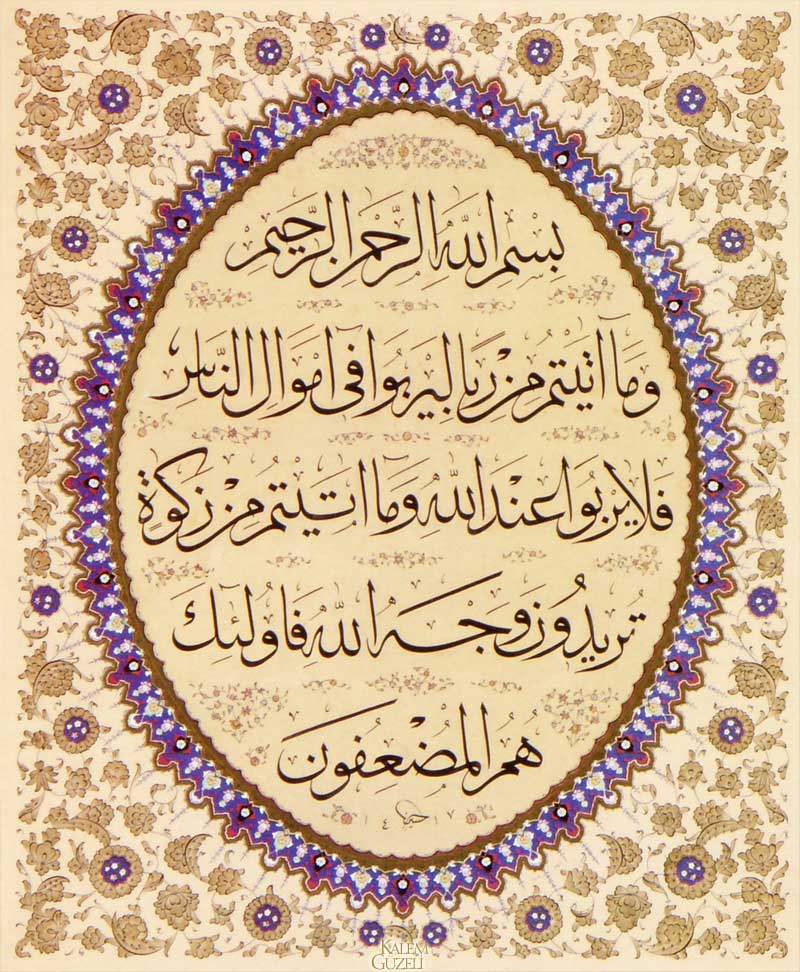 بِسْمِ اللّٰهِ الرَّحْمٰنِ الرَّحِيمِ
وَمَٓا اٰتَيْتُمْ مِنْ رِبًا لِيَرْبُوَا فٖٓى اَمْوَالِ النَّاسِ
فَلَا يَرْبُوا عِنْدَ اللّٰهِ وَمَٓا اٰتَيْتُمْ مِنْ زَكٰوةٍ
تُرٖيدُونَ وَجْهَ اللّٰهِ فَاُولٰٓئِكَ
هُمُ الْمُضْعِفُونَ
KALEM
GÜZELİ